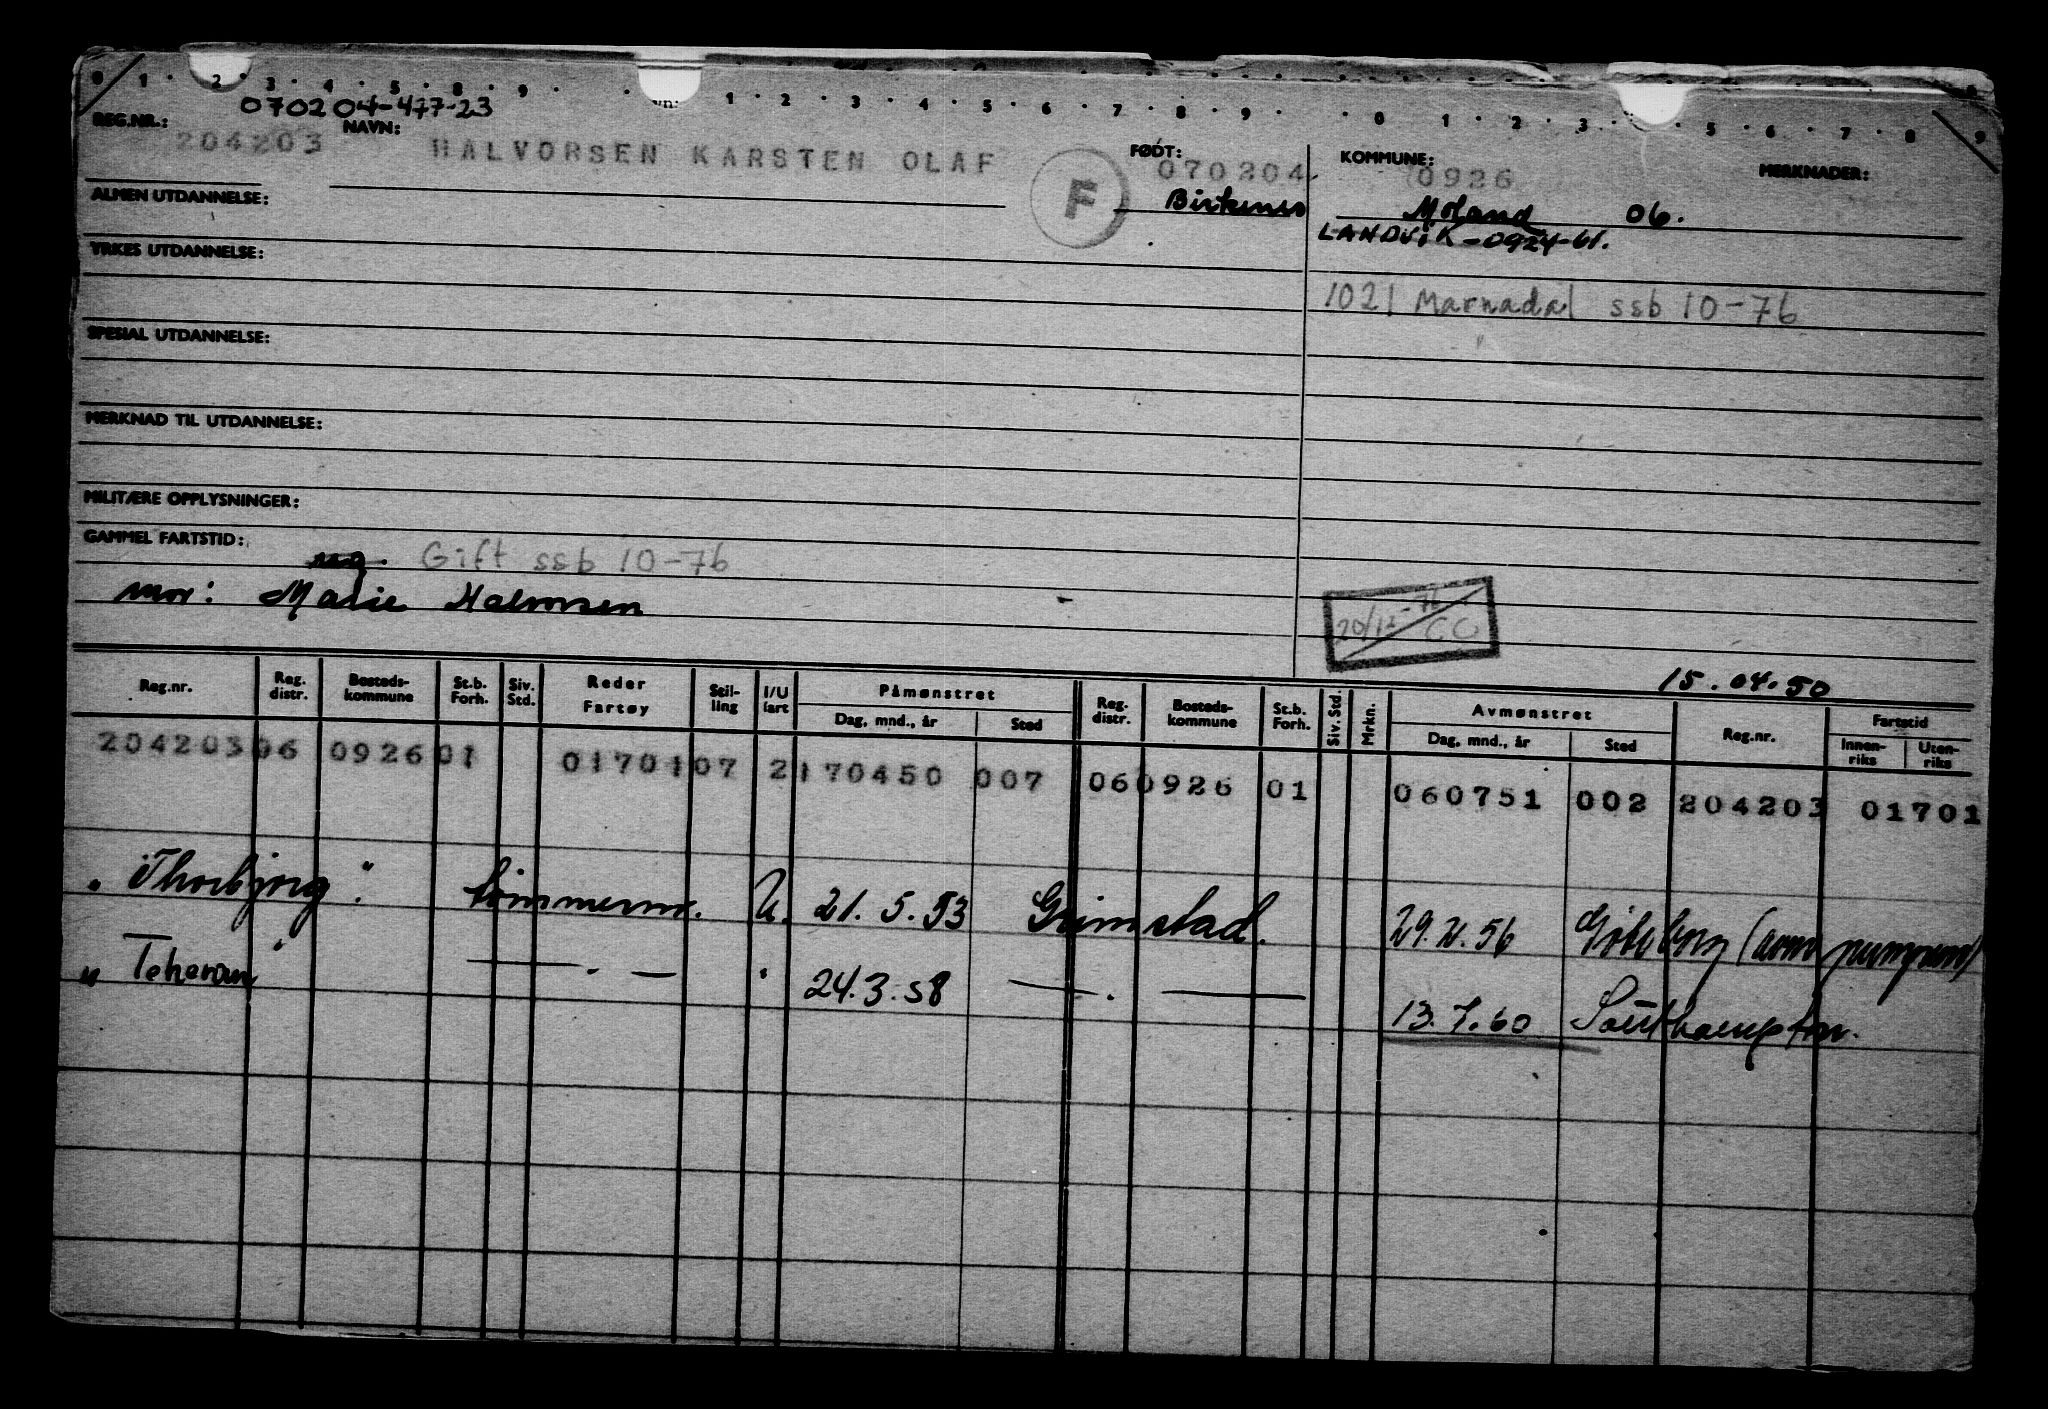 0 1 2 3 4 5 8 9 1 2 3 4 5 6 7 8 9 0 1 2 3 5 6 7 8 9
070204-477-23
REG.NR.: 204203 NAVN: HALVORSEN KARSTEN OLAF F FØDT: 070204 KOMMUNE: 0926 MERKNADER:
ALMEN UTDANNELSE: Birkenes Moland 06.
LANDVIK-0924-61.
YRKES UTDANNELSE:
1021 Marnadal ssb 10-76
SPESIAL UTDANNELSE:
MERKNAD TIL UTDANNELSE:
MILITÆRE OPPLYSNINGER:
GAMMEL FARTSTID:
ug. Gift ssb 10-76
mor: Marie Halvorsen
20/12-76 CC
15.04.50
Reg.nr. Reg. distr. Bosteds-kommune St.b. Forh. Siv. Std. Reder Fartøy Stil-ling I/U fart Påmønstret Dag, mnd., år Sted Reg. distr. Bosteds-kommune St.b. Forh. Siv. Std. Mrkn. Avmønstret Dag, mnd., år Sted Reg.nr. Fartstid Innen-riks Uten-riks
204203 06 0926 01 01701 07 2 170450 007 06 0926 01 060751 002 204203 01701
"Thorbjørg" tømmerm. U. 21.5.53 Grimstad. 29.2.56 Göteborg
"Teheran" — . — " 24.3.58 — . — 13.7.60 Southampton.